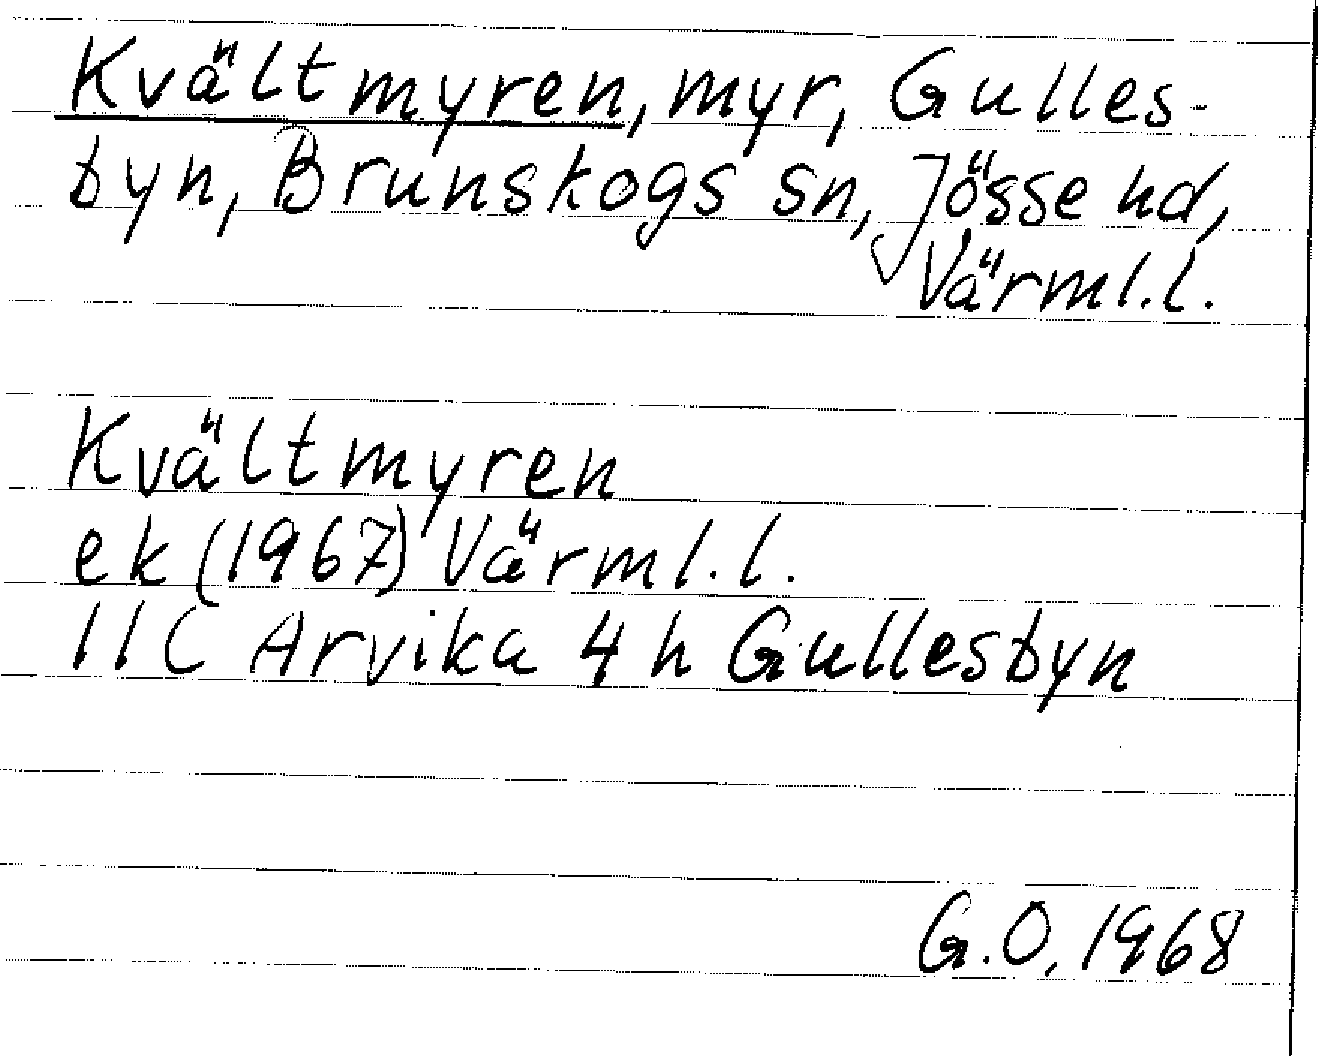 Kvältmyren, myr, Gulles-
byn, Brunskogs sn, Jösse hd,
Värml.l.
Kvältmyren
ek (1967) Värml.l.
11C Arvika 4h Gullesbyn
G.O, 1968